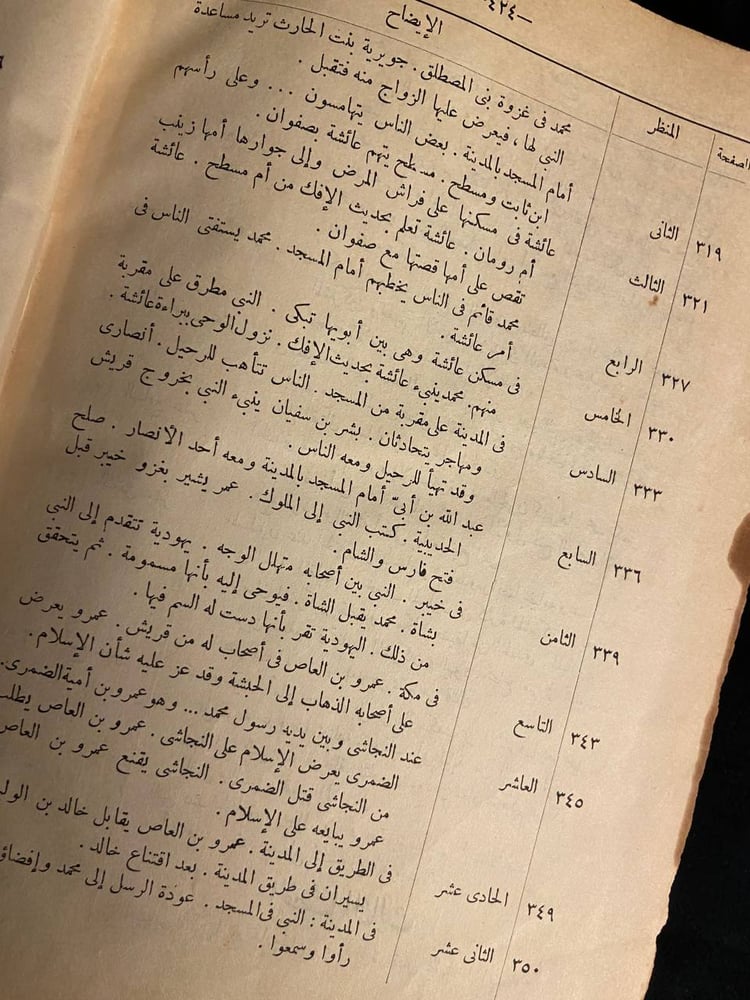 —٤٢٤—
الصفحة المنظر الإيضاح
محمد فى غزوة بنى المصطلق . جويرية بنت الحارث تريد مساعدة
النبى لها ، فيعرض عليها الزواج منه فتقبل .
٣١٩ الثانى أمام المسجد بالمدينة . بعض الناس يتهامسون ... وعلى رأسهم
ابن ثابت ومسطح . مسطح يتهم عائشة بصفوان .
٣٢١ الثالث عائشة فى مسكنها على فراش المرض وإلى جوارها أمها زينب
أم رومان . عائشة تعلم بحديث الإفك من أم مسطح . عائشة
تقص على أمها قصتها مع صفوان .
٣٢٧ الرابع محمد قائم فى الناس يخطبهم أمام المسجد . محمد يستفتى الناس فى
أمر عائشة .
٣٣٠ الخامس فى مسكن عائشة وهى بين أبويها تبكى . النبى مطرق على مقربة
منهم . محمد ينبىء عائشة بحديث الإفك . نزول الوحى ببراءة عائشة .
٣٣٣ السادس فى المدينة على مقربة من المسجد . الناس تتأهب للرحيل . أنصارى
ومهاجر يتحادثان . بشر بن سفيان ينبىء النبى بخروج قريش
وقد تهيأ للرحيل ومعه الناس .
٣٣٦ السابع عبد الله بن أبىّ أمام المسجد بالمدينة ومعه أحد الأنصار . صلح
الحديبية . كتب النبى إلى الملوك . عمر يشير بغزو خيبر قبل
فتح فارس والشام .
٣٣٩ الثامن فى خيبر . النبى بين أصحابه متهلل الوجه . يهودية تتقدم إلى النبى
بشاة . محمد يقبل الشاة . فيوحى إليه بأنها مسمومة . ثم يتحقق
من ذلك . اليهودية تقر بأنها دست له السم فيها .
٣٤٣ التاسع فى مكة . عمرو بن العاص فى أصحاب له من قريش . عمرو يعرض
على أصحابه الذهاب إلى الحبشة وقد عز عليه شأن الإسلام .
٣٤٥ العاشر عند النجاشى وبين يديه رسول محمد ... وهو عمرو بن أمية الضمرى .
الضمرى يعرض الإسلام على النجاشى . عمرو بن العاص يطلب
من النجاشى قتل الضمرى . النجاشى يقنع عمرو بن العاص
عمرو يبايعه على الإسلام .
٣٤٩ الحادى عشر فى الطريق إلى المدينة . عمرو بن العاص يقابل خالد بن
يسيران فى طريق المدينة . بعد اقتناع خالد .
٣٥٠ الثانى عشر فى المدينة : النبى فى المسجد . عودة الرسل إلى محمد
رأوا وسمعوا .